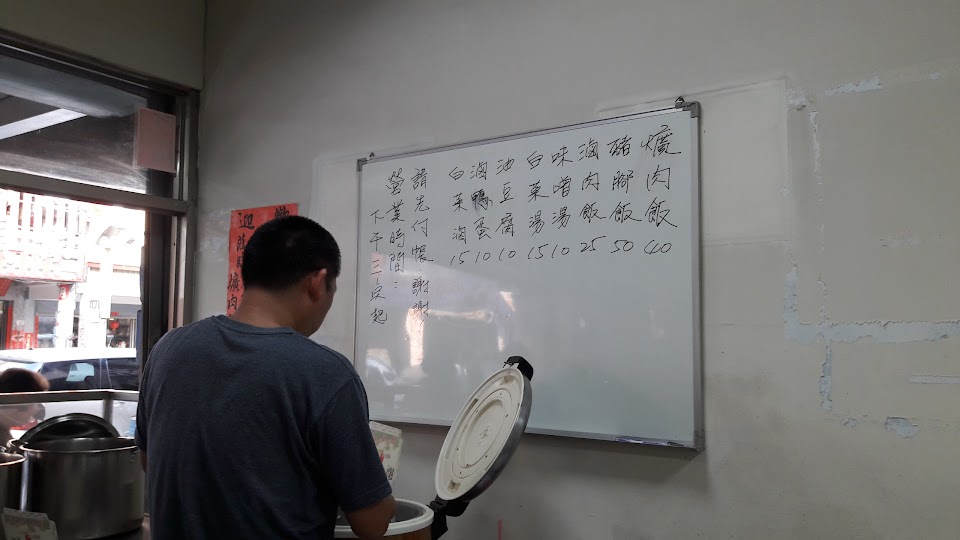 爌肉飯 40
豬腳飯 50
滷肉飯 25
味噌湯 10
白菜湯 15
油豆腐 10
滷鴨蛋 10
白菜滷 15
請先付帳.謝謝
營業時間:
下午三點起
歡
迎
爌肉